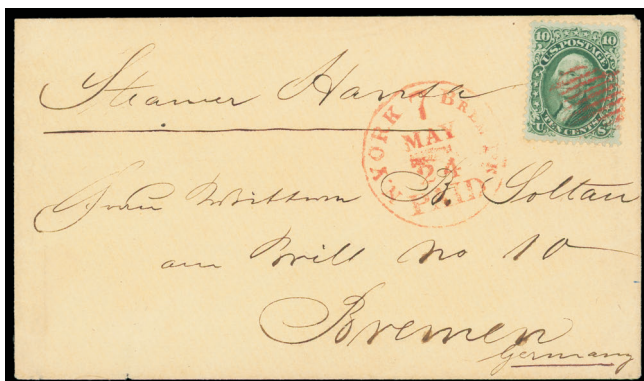 Steamer Hansa
10 10
U.S. POSTAGE
TEN CENTS
U S
N. YORK BREM. PKT.
7
MAY
24
PAID
Frau Wittwe B. Soltau
am Brill No 10
Bremen
Germany